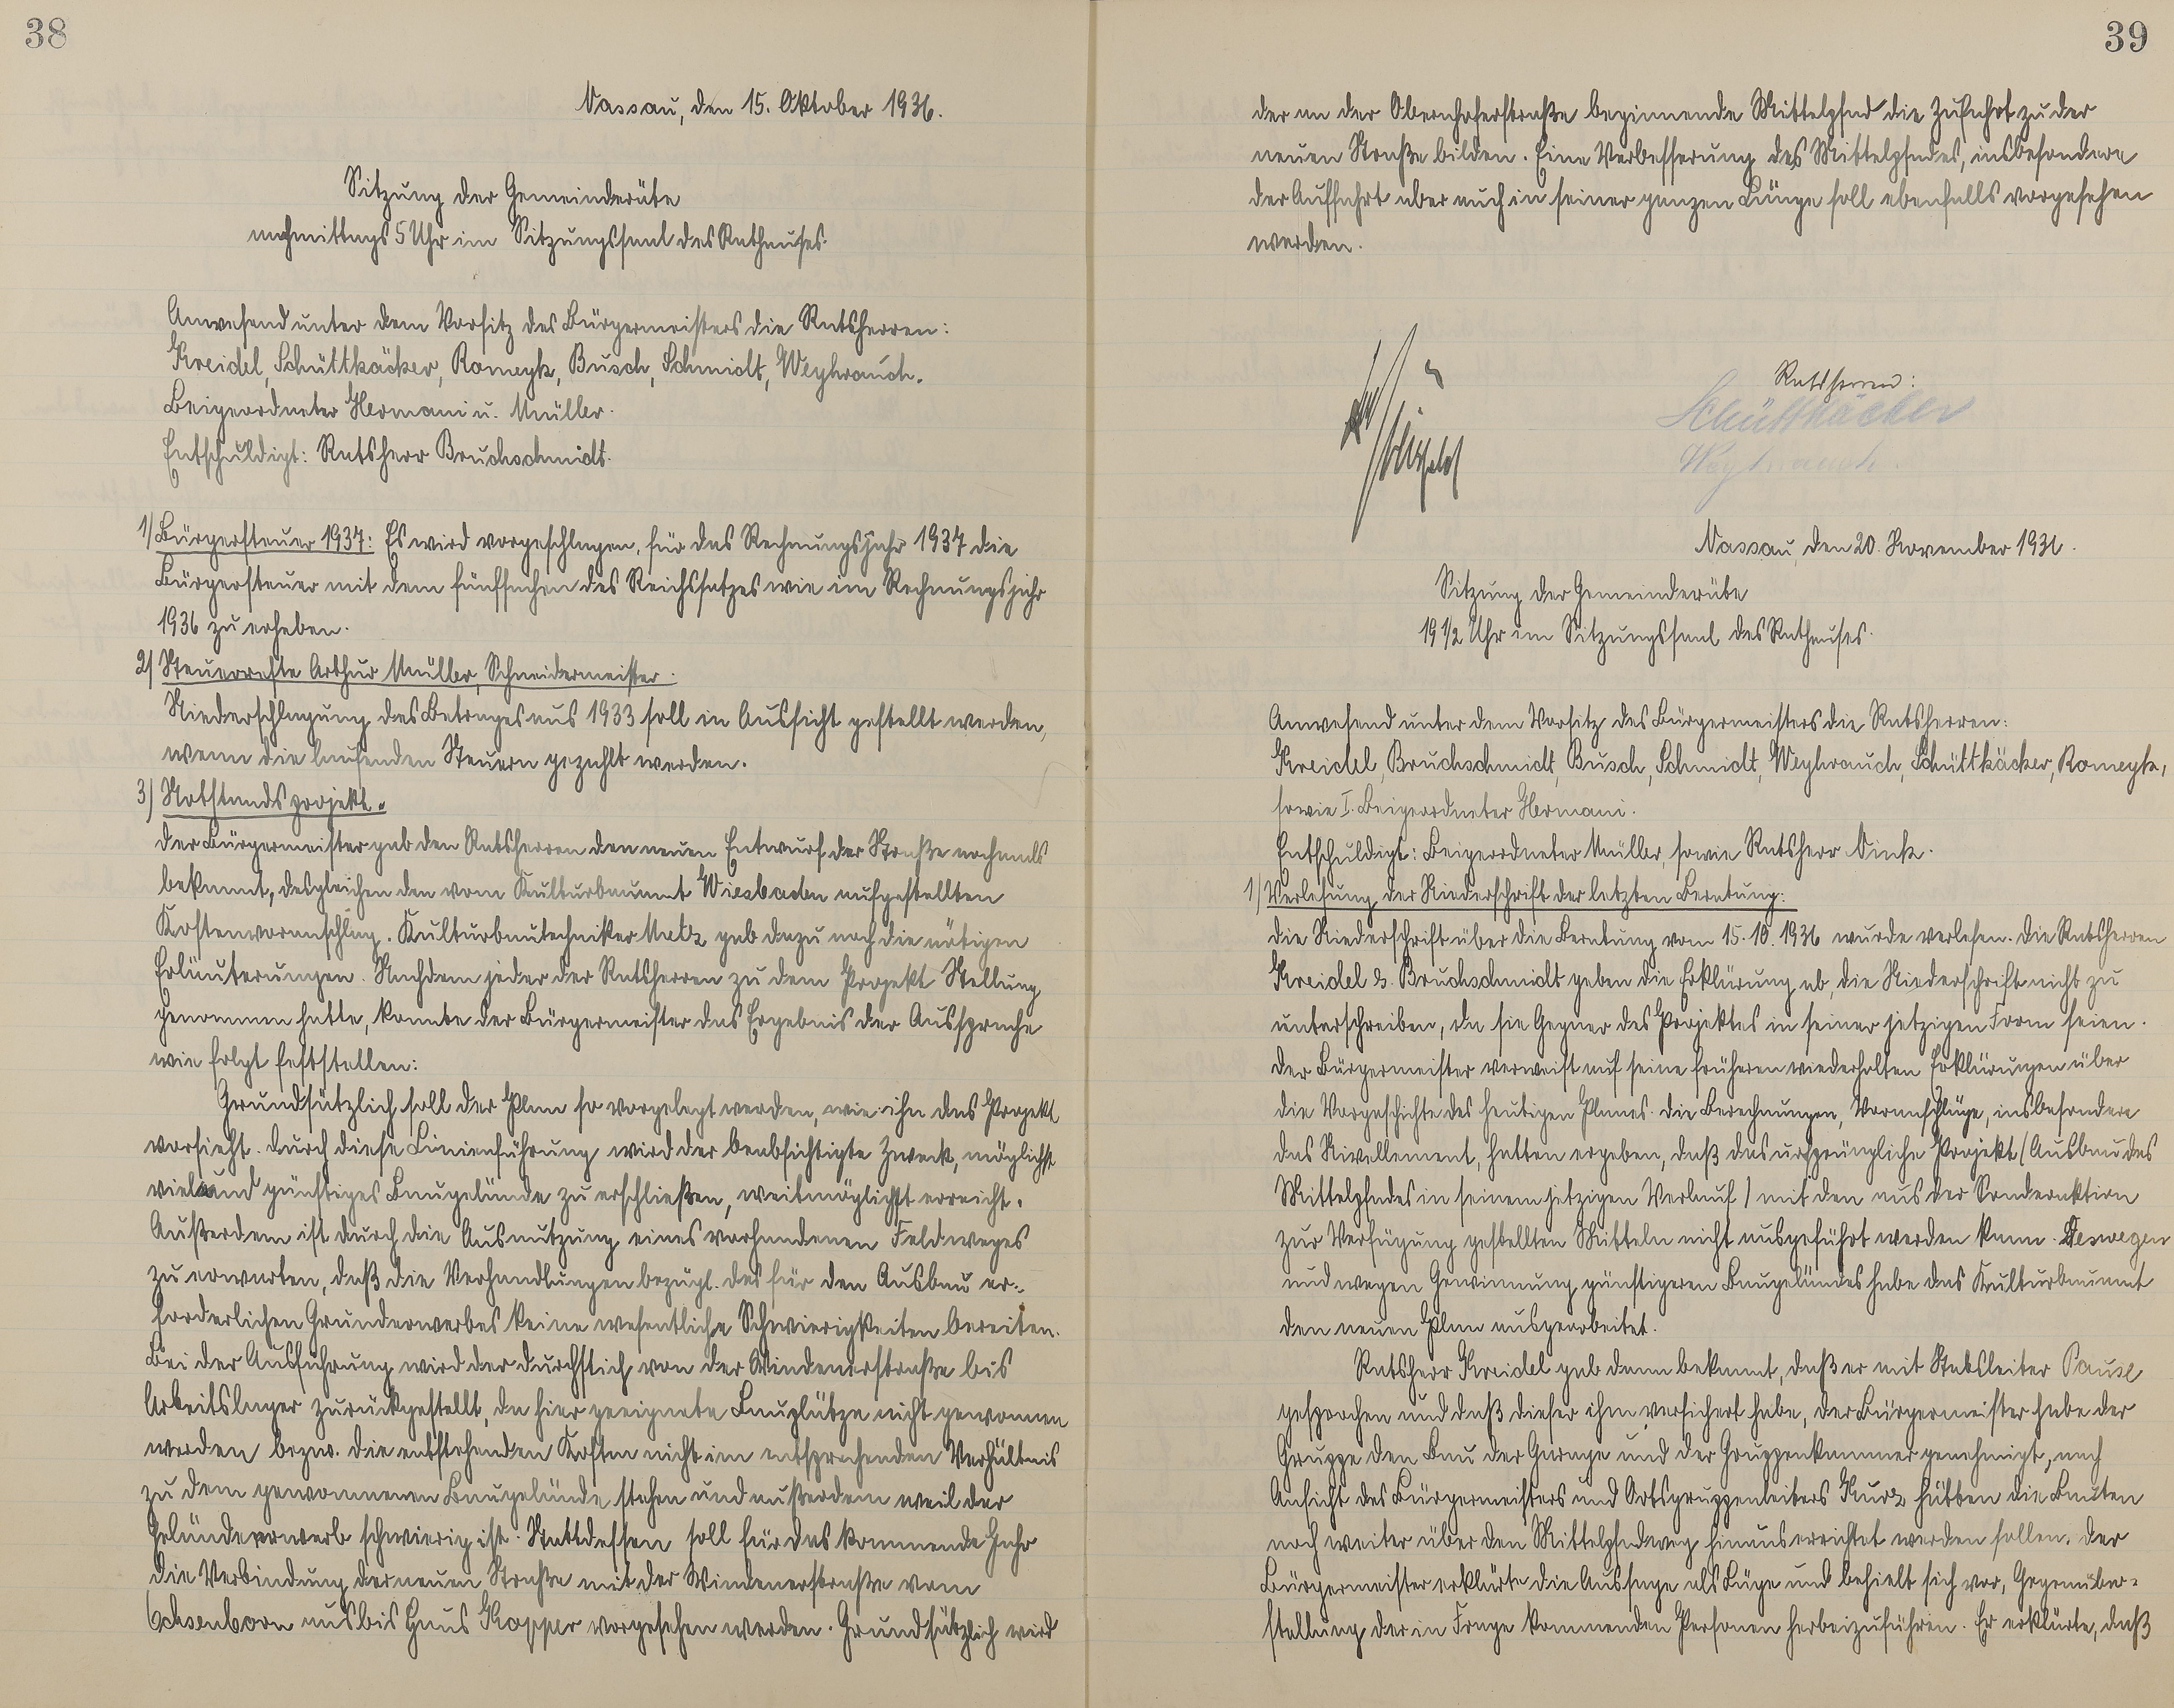 38
Nassau, den 15. Oktober 1936.
Sitzung der Gemeinderäte
nachmittags 5 Uhr im Sitzungssaal des Rathauses.
Anwesend unter dem Vorsitz des Bürgermeisters die Ratsherren:
Kreidel, Schüttkäcker, Romeyk, Busch, Schmidt, Weyhrauch.
Beigeordneter Hermani u. Müller.
Entschuldigt: Ratsherr Bruchschmidt.
1/ Bürgersteuer 1937: Es wird vorgeschlagen, für das Rechnungsjahr 1937 die
Bürgersteuer mit dem fünffachen des Reichssatzes wie im Rechnungsjahr
1936 zu erheben.
2/ Steuerreste Arthur Müller, Schneidermeister.
Niederschlagung des Betrages aus 1933 soll in Aussicht gestellt werden,
wenn die laufenden Steuern gezahlt werden.
3/ Notstandsprojekt.
Der Bürgermeister gab den Ratsherren den neuen Entwurf der Straße nochmals
bekannt, desgleichen den vom Kulturbauamt Wiesbaden aufgestellten
Kostenvoranschlag. Kulturbautechniker Matz gab dazu noch die nötigen
Erläuterungen. Nachdem jeder der Ratsherren zu dem Projekt Stellung
genommen hatte, konnte der Bürgermeister das Ergebnis der Aussprache
wie folgt feststellen:
Grundsätzlich soll der Plan so vorgelegt werden, wie ihn das Projekt
vorsieht. Durch diese Linienführung wird der beabsichtigte Zweck, möglichst
viel und günstiges Baugelände zu erschließen, weitmöglichst erreicht.
Außerdem ist durch die Ausnutzung eines vorhandenen Feldweges
zu erwarten, daß die Verhandlungen bezügl. des für den Ausbau er-
forderlichen Grunderwerbes keine wesentliche Schwierigkeiten bereiten.
Bei der Ausführung wird der Durchstich von der Windenerstraße bis
Arbeitslager zurückgestellt, da hier geeignete Bauplätze nicht gewonnen
werden bezw. die entstehenden Kosten nicht im entsprechenden Verhältnis
zu dem gewonnenen Baugelände stehen und außerdem weil der
Geländeerwerb schwierig ist. Stattdessen soll für das kommende Jahr
die Verbindung der neuen Straße mit der Windenerstraße vom
Ochsenborn aus bis Haus Kopper vorgesehen werden. Grundsätzlich wird
39
der an der Obernhoferstraße beginnende Mittelpfad die Zufahrt zu der
neuen Straße bilden. Eine Verbesserung des Mittelpfades, insbesondere
der Auffahrt aber auch in seiner ganzen Länge soll ebenfalls vorgesehen
werden.
Ratsherren:
Schüttkäcker
Weyhrauch.
Nassau, den 20. November 1936.
Sitzung der Gemeinderäte
19 1/2 Uhr im Sitzungssaal des Rathauses.
Anwesend unter dem Vorsitz des Bürgermeisters die Ratsherren:
Kreidel, Bruchschmidt, Busch, Schmidt, Weyhrauch, Schüttkäcker, Romeyk,
sowie I. Beigeordneter Hermani.
Entschuldigt: Beigeordneter Müller, sowie Ratsherr Vink.
1/ Verlesung der Niederschrift der letzten Beratung:
Die Niederschrift über die Beratung vom 15.10.1936 wurde verlesen. Die Ratsherren
Kreidel & Bruchschmidt geben die Erklärung ab, die Niederschrift nicht zu
unterschreiben, da sie Gegner des Projektes in seiner jetzigen Form seien.
Der Bürgermeister verweist auf seine früheren wiederholten Erklärungen über
die Vorgeschichte des heutigen Planes. Die Berechnungen, Voranschläge, insbesondere
das Nivellement, hatten ergeben, daß das ursprüngliche Projekt (Ausbau des
Mittelpfades in seinem jetzigen Verlauf) mit den aus der Sonderaktion
zur Verfügung gestellten Mitteln nicht ausgeführt werden kann. Deswegen
und wegen Gewinnung günstigeren Baugeländes habe das Kulturbauamt
den neuen Plan ausgearbeitet.
Ratsherr Kreidel gab dann bekannt, daß er mit Stabsleiter Pause
gesprochen und daß dieser ihm versichert habe, der Bürgermeister habe der
Gruppe den Bau der Garage und der Gruppenkammer genehmigt, nach
Ansicht des Bürgermeisters und Ortsgruppenleiters Kurz hätten die Bauten
noch weiter über den Mittelpfadweg hinaus errichtet werden sollen. Der
Bürgermeister erklärte die Aussage als Lüge und behielt sich vor, Gegenüber-
stellung der in Frage kommenden Personen herbeizuführen. Er erklärte, daß